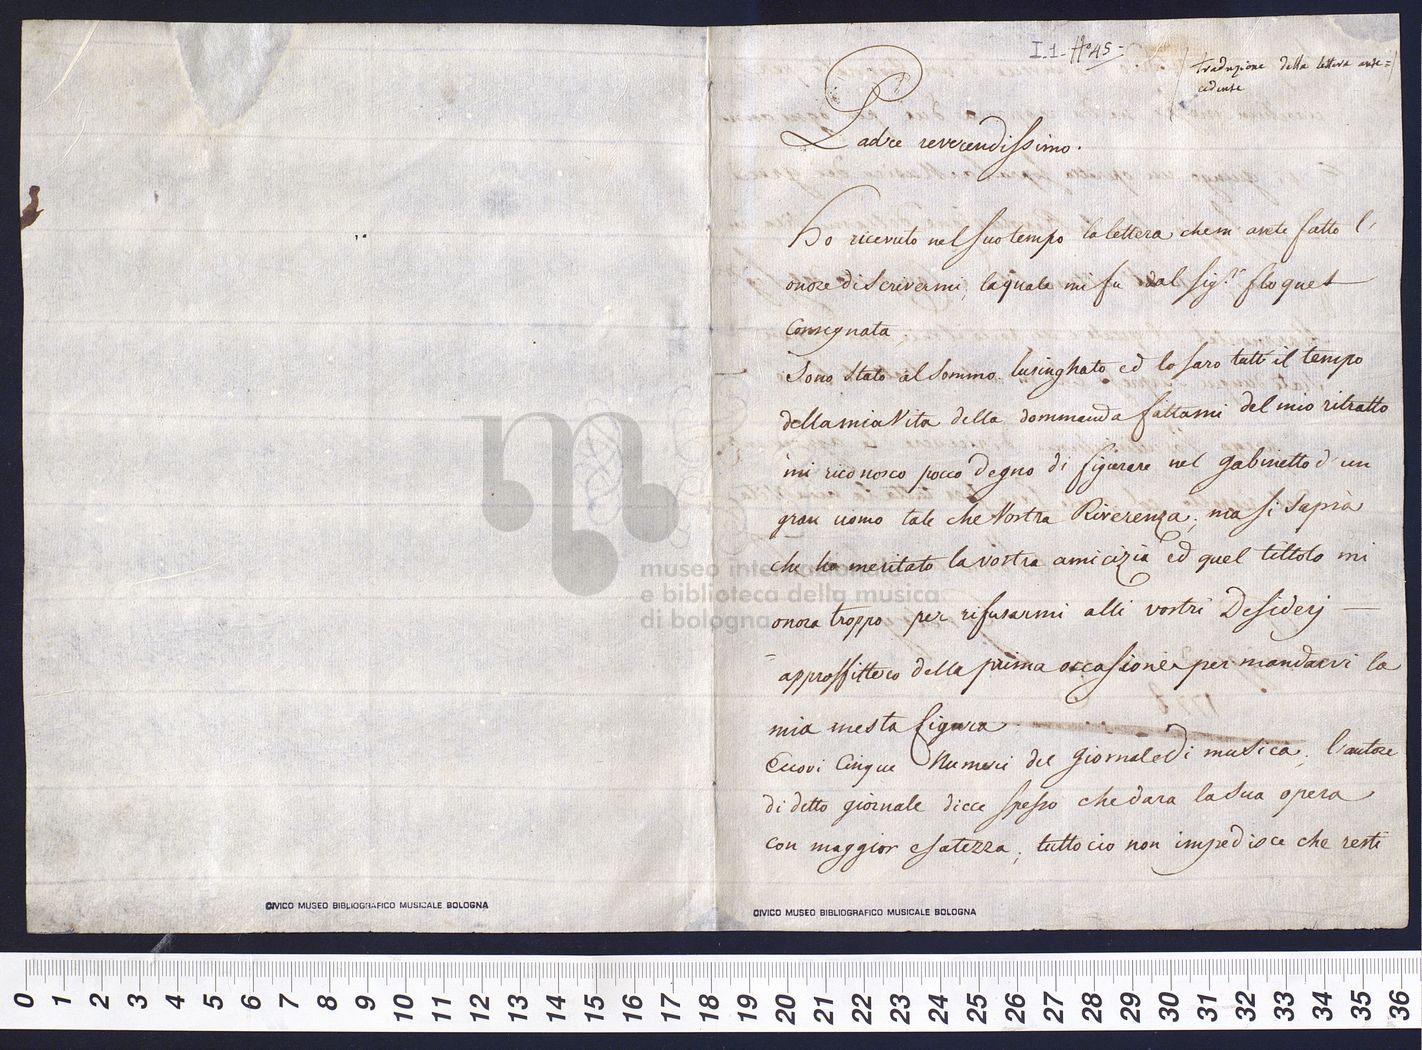 I.1. H°45
Traduzione della lettera ante=
cedente
Padre reverendissimo.
Ho ricevuto nel suo tempo la lettera che m'avete fatto l'
onore di scrivermi, la quale mi fu dal Sig.r floquet
Consegnata.
Sono stato al sommo lusinghato ed lo saro tutt il tempo
della mia Vita della dommanda fattami del mio ritratto
mi riconosco pocco degno di figurare nel gabinetto d'un
gran uomo tale che Vostra Riverenza, ma si saprà
che ha meritato la vostra amicizia ed quel tittolo mi
onora troppo per rifusarmi alli vostri Desiderj —
approffittero della prima occasione per mandarvi la
mia mesta figura.
Eccovi Cinque Numeri del giornale Di musica, l'autore
di ditto giornale dicce spesso che dara la sua opera
con maggior esatezza, tutto cio non impedisce che resti
museo internazionale
e biblioteca della musica
di bologna
CIVICO MUSEO BIBLIOGRAFICO MUSICALE BOLOGNA
CIVICO MUSEO BIBLIOGRAFICO MUSICALE BOLOGNA
0 1 2 3 4 5 6 7 8 9 10 11 12 13 14 15 16 17 18 19 20 21 22 23 24 25 26 27 28 29 30 31 32 33 34 35 36